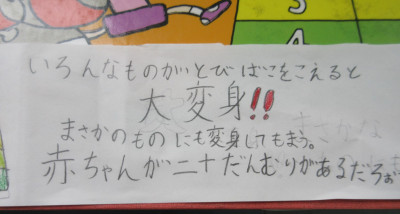 いろんなものがとびばこをこえると
大変身!!
まさかのものにも変身してしまう。
赤ちゃんが二十だんむりがあるだろぉ
5
4